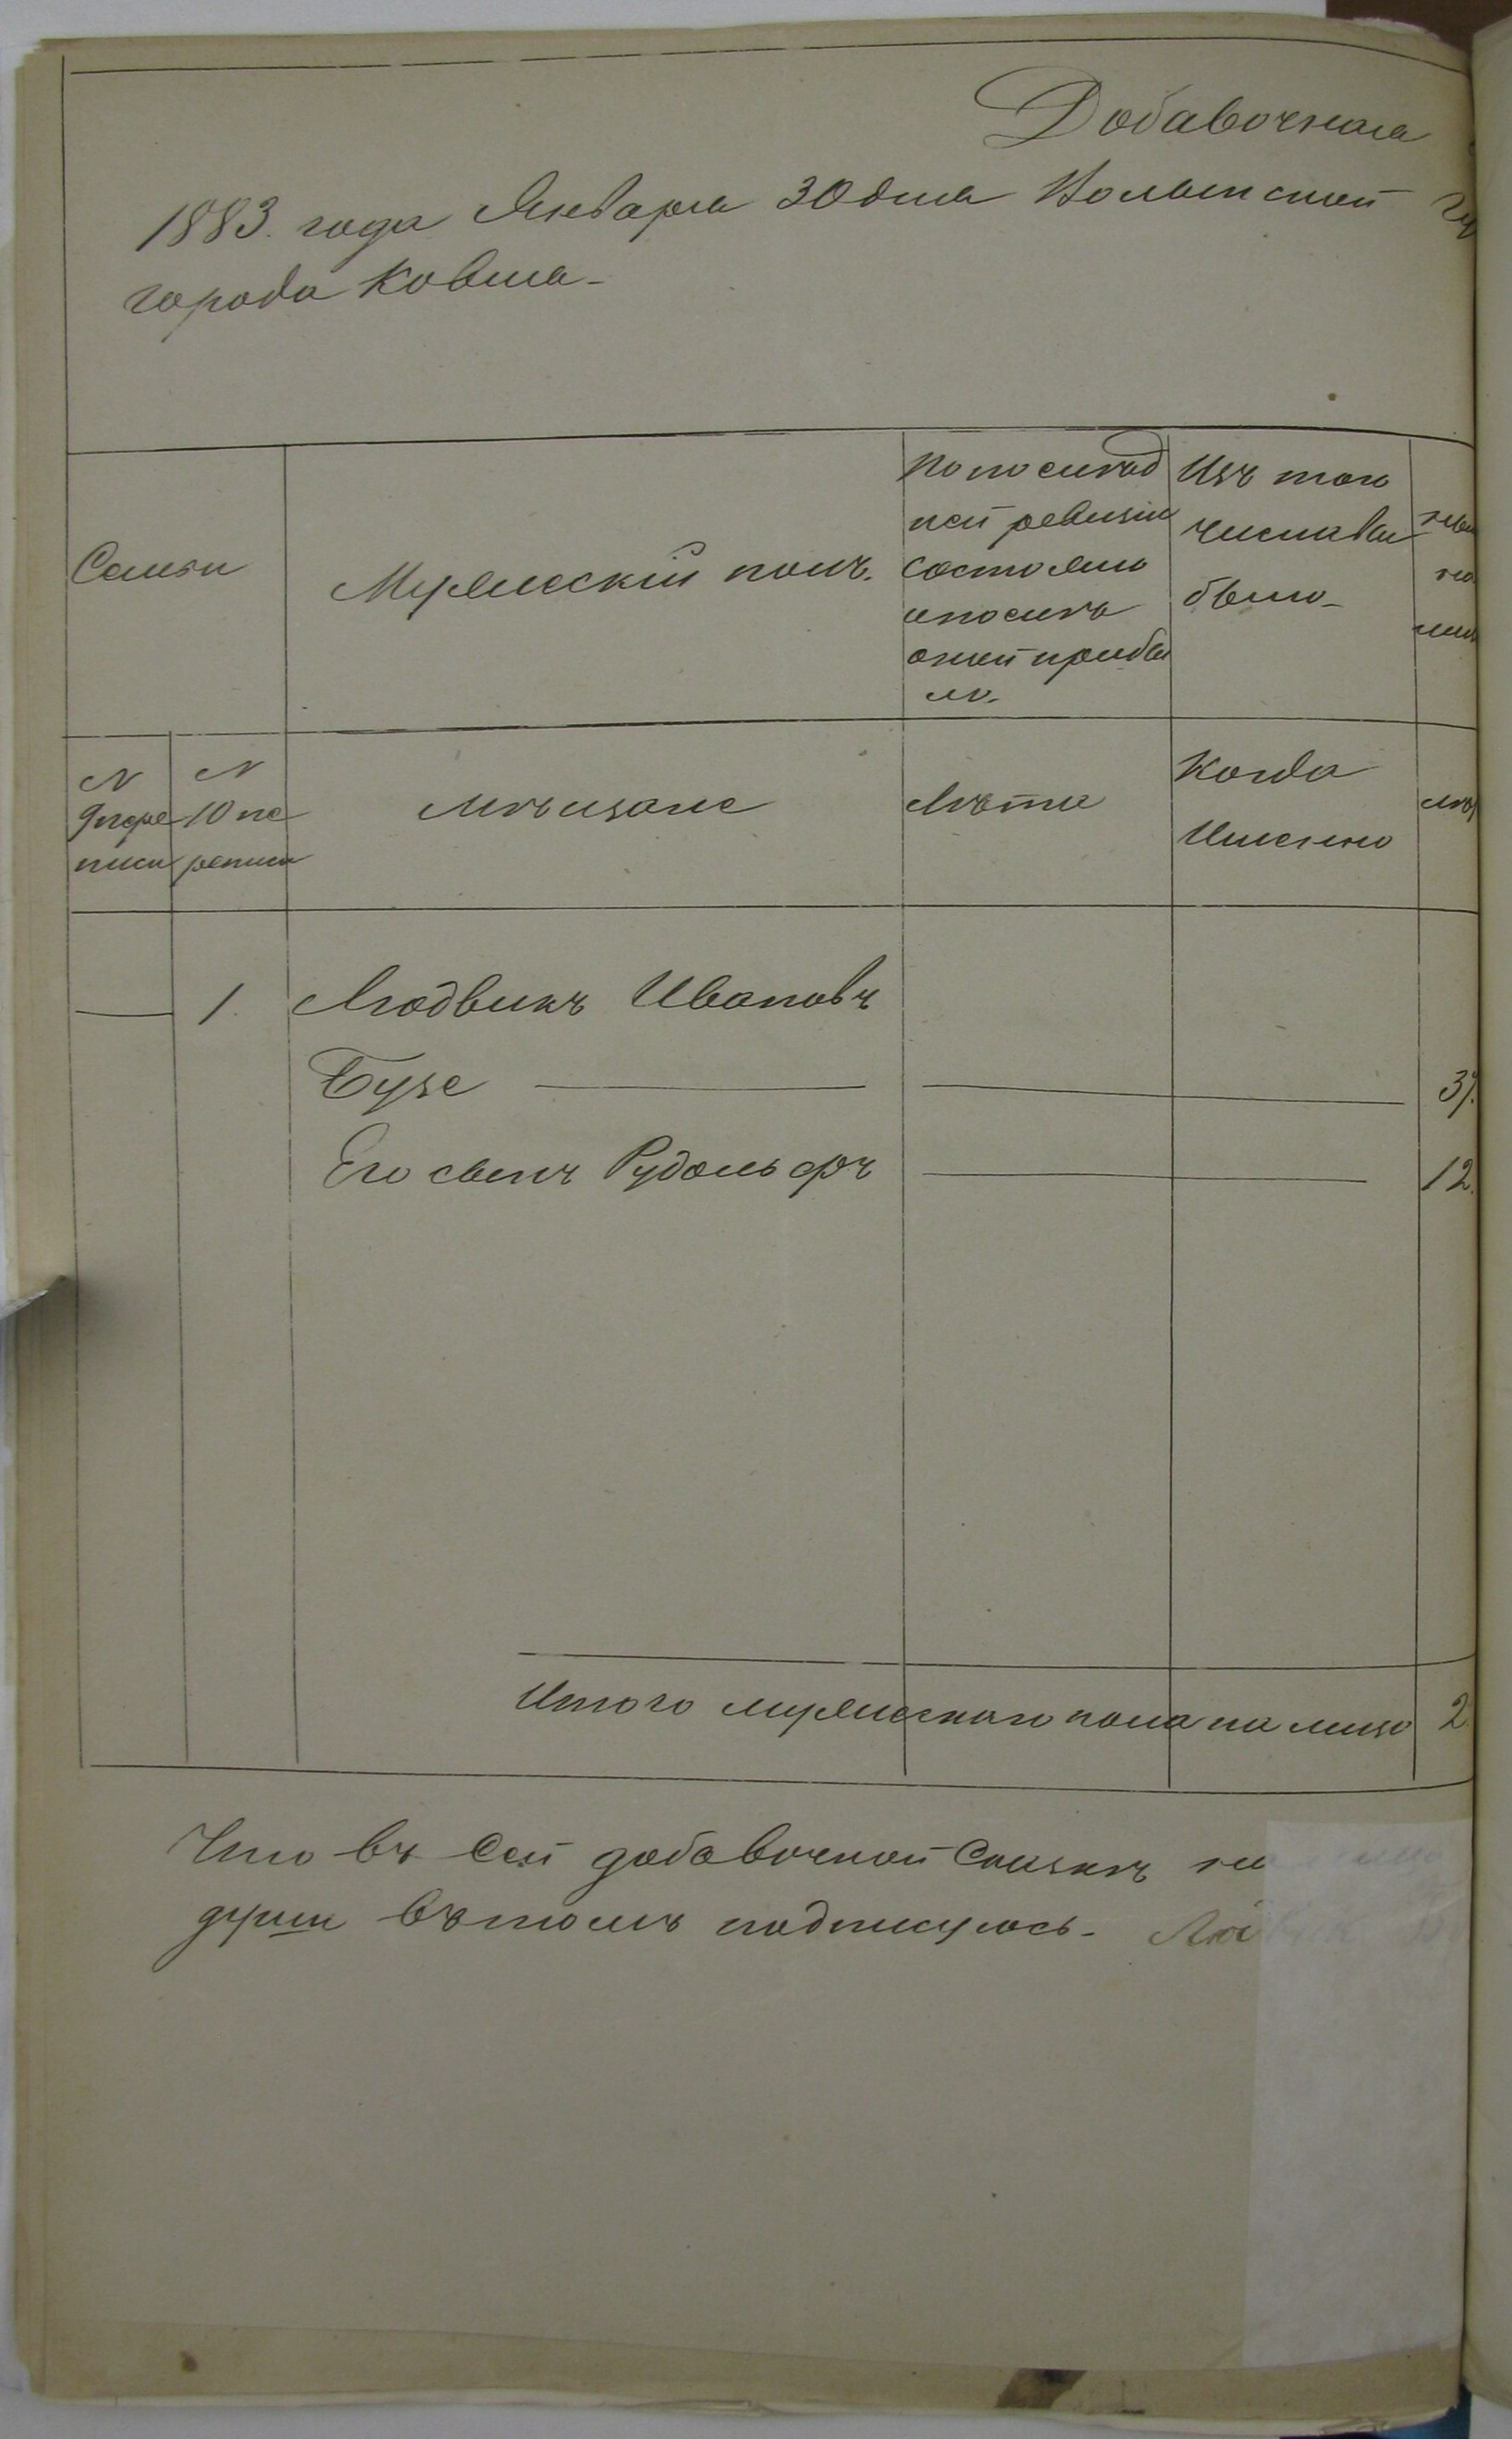 Добавочная
1883. года Января 30 дня Волынской
города Ковля-
Семьи
Мужескій полъ.
По послѣд
ней ревизіи
состояло
и послѣ
оной прибы
ло.
Изъ того
числа вы
было-
N
9 пере
писи
N
10 пе
реписи
Мѣщане
Лѣта
Когда
Именно
1. Людвикъ Ивановъ
Бузе 37.
Его сынъ Рудольфъ 12.
Итого мужескаго пола на лицо 2
Что въ сей добавочной сказкѣ на
души въ томъ подпишусь-